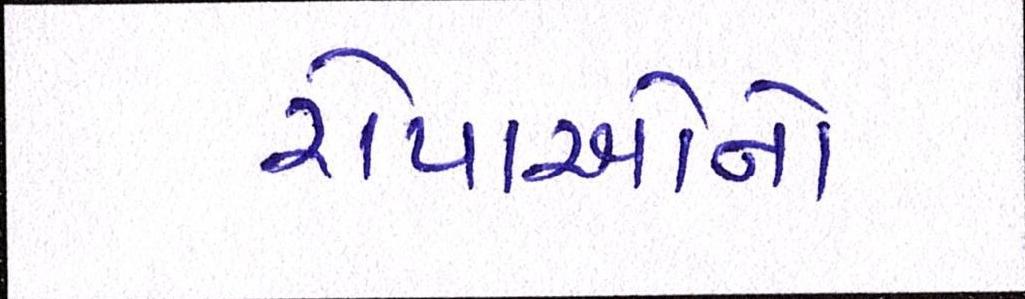 રોપાઓનો